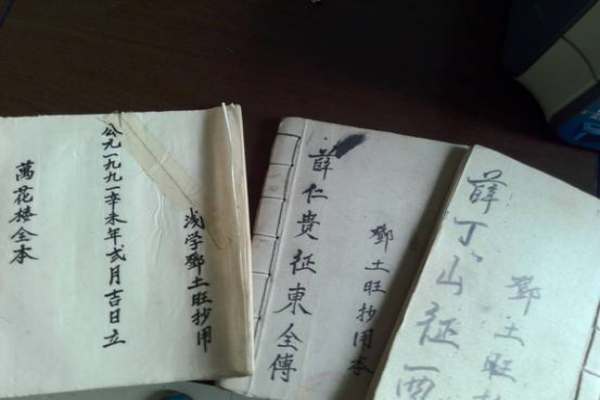 浅学鄧土旺抄用
公元一九九一辛未年弍月吉日立
萬花楼全本
鄧土旺抄用本
薛仁貴征東全傳
鄧土旺
薛丁山征西